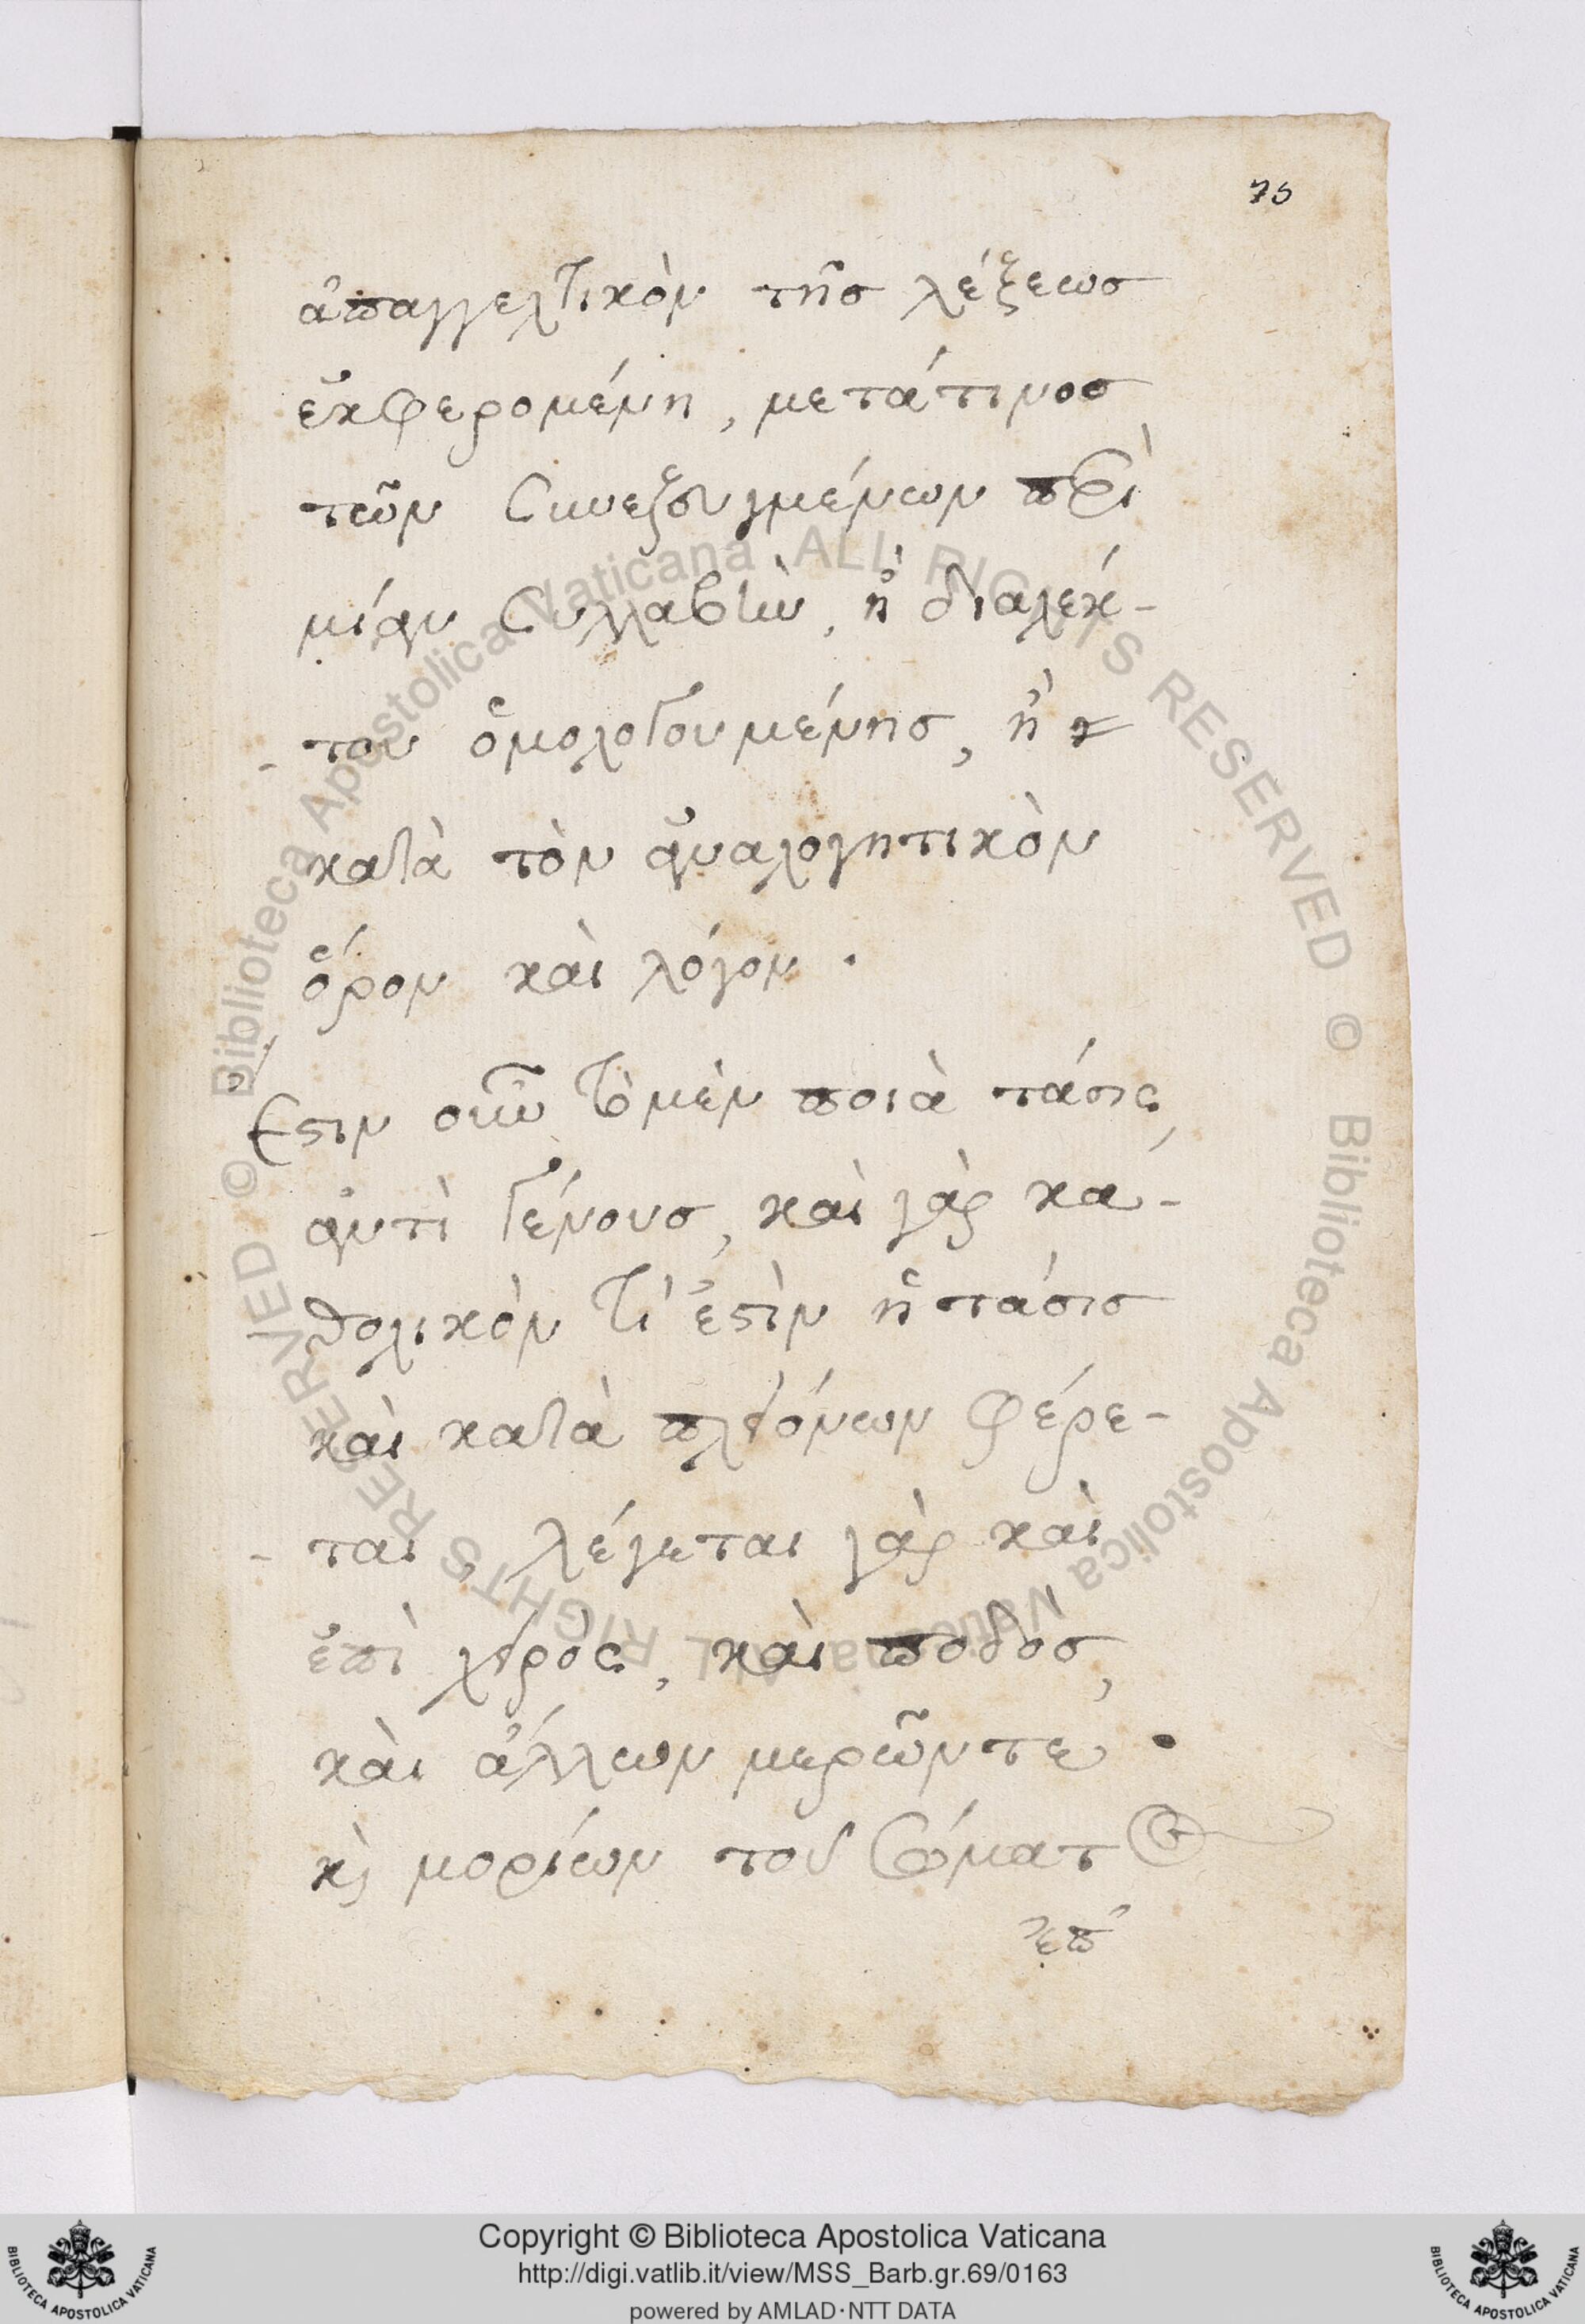 75
ἀπαγγελτικὸν τῆς λέξεως
ἐκφερομένη, μετά τινος
τῶν συνεζευγμένων περὶ
μίαν συλλαβὴν, ἢ διαλέκ-
-του ὁμολογουμένης, ἢ
κατὰ τὸν ἀναλογητικὸν
ὅρον καὶ λόγον .
Ἔστιν οὖν τὸ μὲν ποιὰ τάσις,
ἀντὶ γένους, καὶ γὰρ κα-
θολικόν τι ἐστὶν ἡ τάσις
καὶ κατὰ πλειόνων φέρε-
-ται, λέγεται γὰρ καὶ
ἐπὶ χειρὸς, καὶ ποδὸς,
καὶ ἄλλων μερῶν τε .
κὶ μορίων τοῦ σώματος
ἐπ'
Copyright © Biblioteca Apostolica Vaticana
http://digi.vatlib.it/view/MSS_Barb.gr.69/0163
powered by AMLAD·NTT DATA
BIBLIOTECA APOSTOLICA VATICANA
BIBLIOTECA APOSTOLICA VATICANA
© Biblioteca Apostolica Vaticana ALL RIGHTS RESERVED
© Biblioteca Apostolica Vaticana ALL RIGHTS RESERVED